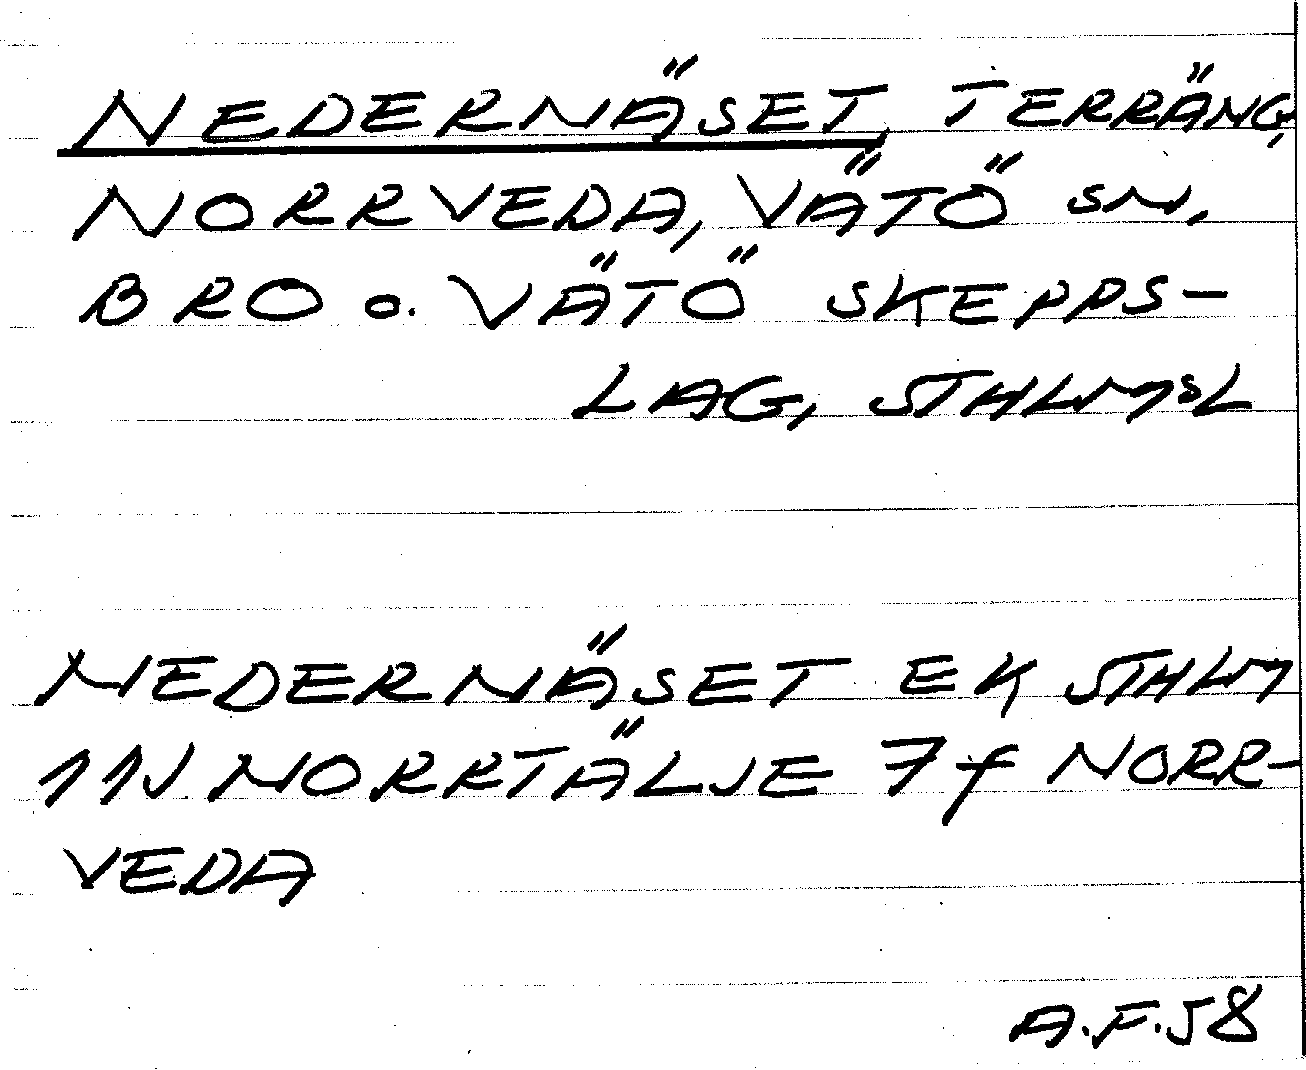 NEDERNÄSET, TERRÄNG,
NORRVEDA, VÄTÖ SN,
BRO o. VÄTÖ SKEPPS-
LAG, STHLMSL
NEDERNÄSET EK STHLM
11J NORRTÄLJE 7f NORR-
VEDA
A.F.58